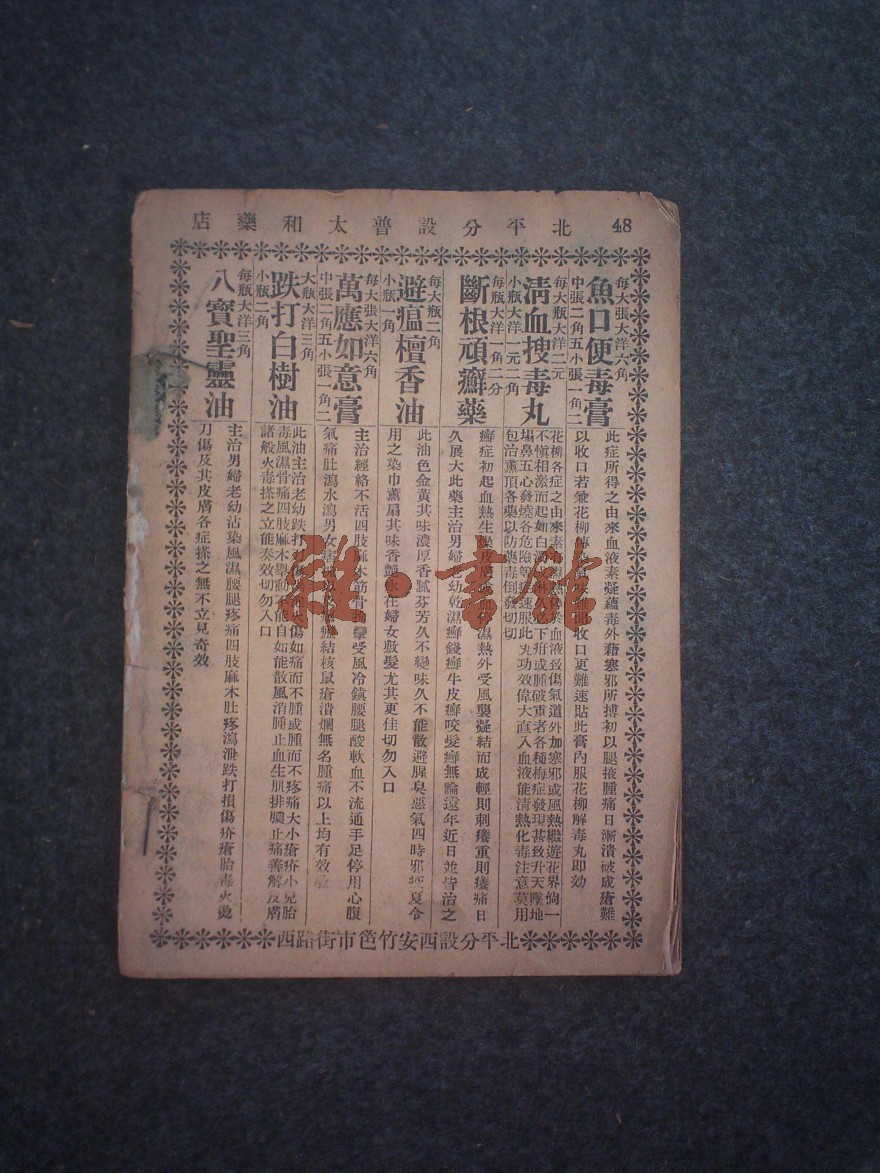 48 北平分設普太和藥店
每大張大洋六角
魚口便毒膏
中張二角五小張一角二
此症所得之由來血液素疑蘊毒外藉寒邪所搏初以腿掖腫痛日漸潰破成瘡難
以收口若兼花柳 收口更難速貼此膏內服花柳解毒丸即効
每大瓶大洋二元
清血搜毒丸
小瓶大洋一元二角
花柳各症之由來素 血液致傷氣道外加寒邪或風熱繼遊花界倘一
不愼相激而起如白濁 下疳或腫破重者各種梅症發現甚致升天墜地
塌鼻五心發燒各危險等 速服此丸功效偉大直入血液能清熱化毒注意莫用
包治薰頂各藥以防藥毒倒發切切
每瓶大洋一角二分
斷根頑癬藥
癬症初起血熱生 濕熱外受風襲疑結而成輕則刺癢重則癢痛日
久展大此藥主治男婦老幼乾濕癬錢癬牛皮癬咬髮癬無論遠年近日並皆治之
每大瓶二角
避瘟檀香油
小瓶一角
此油色金黃其味濃厚香膩芬芳久不變味久不能散避腥臭惡氣四時邪 夏令
用之染巾薰扇其味香艷永在婦女敷髮尤其更佳切勿入口
每大張大洋六角
萬應如意膏
中張二角五小張一角二
主治經絡不活四肢麻木筋骨 攣受風冷鎮腰腿酸軟血不流通手足停用心腹
氣痛肚瀉水瀉男女 結核鼠瘡潰爛無名腫痛以上均有效
大瓶大洋三角
跌打白樹油
小瓶二角
此油主治老幼跌打 傷如痛而不腫或腫而不疼痛大小瘡疥小兒胎
毒風濕骨痛四肢麻木舉動不能自如能散風消腫止血生肌排膿止痛善解皮膚
諸般火毒搽之立能奏效切勿入口
每瓶大洋三角
八寶聖靈油
主治男婦老幼沾染風濕腰腿疼痛四肢麻木肚疼瀉泄跌打損傷疥瘡胎毒火燙
刀傷及其皮膚各症搽之無不立見奇效
北平分設西安竹笆市街路西
雜·書館